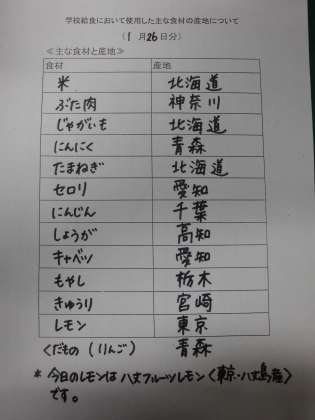 学校給食において使用した主な食材の産地について
（1月26日分）
≪主な食材と産地≫
食材 産地
米 北海道
ぶた肉 神奈川
じゃがいも 北海道
にんにく 青森
たまねぎ 北海道
セロリ 愛知
にんじん 千葉
しょうが 高知
キャベツ 愛知
もやし 栃木
きゅうり 宮崎
レモン 東京
くだもの（りんご） 青森
* 今日のレモンは八丈フルーツレモン〈東京・八丈島産〉
です。